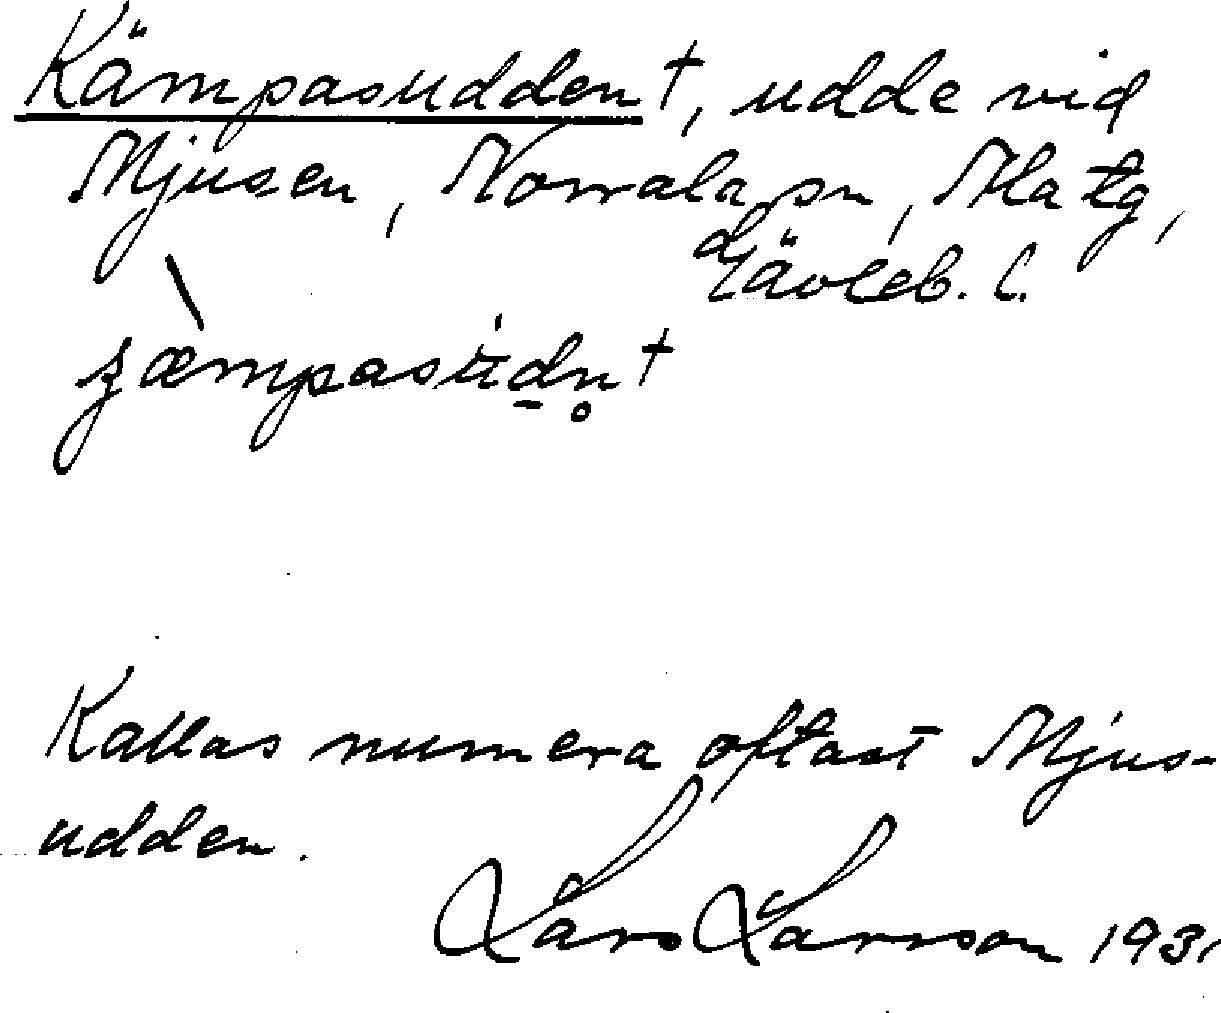 Kämpasudden †, udde vid
Mjusen, Norrala sn, Ala tg,
Gävleb. l.
kæmpasùdn̥ †
Kallas numera oftast Mjus-
udden.
Lars Larsson 1931